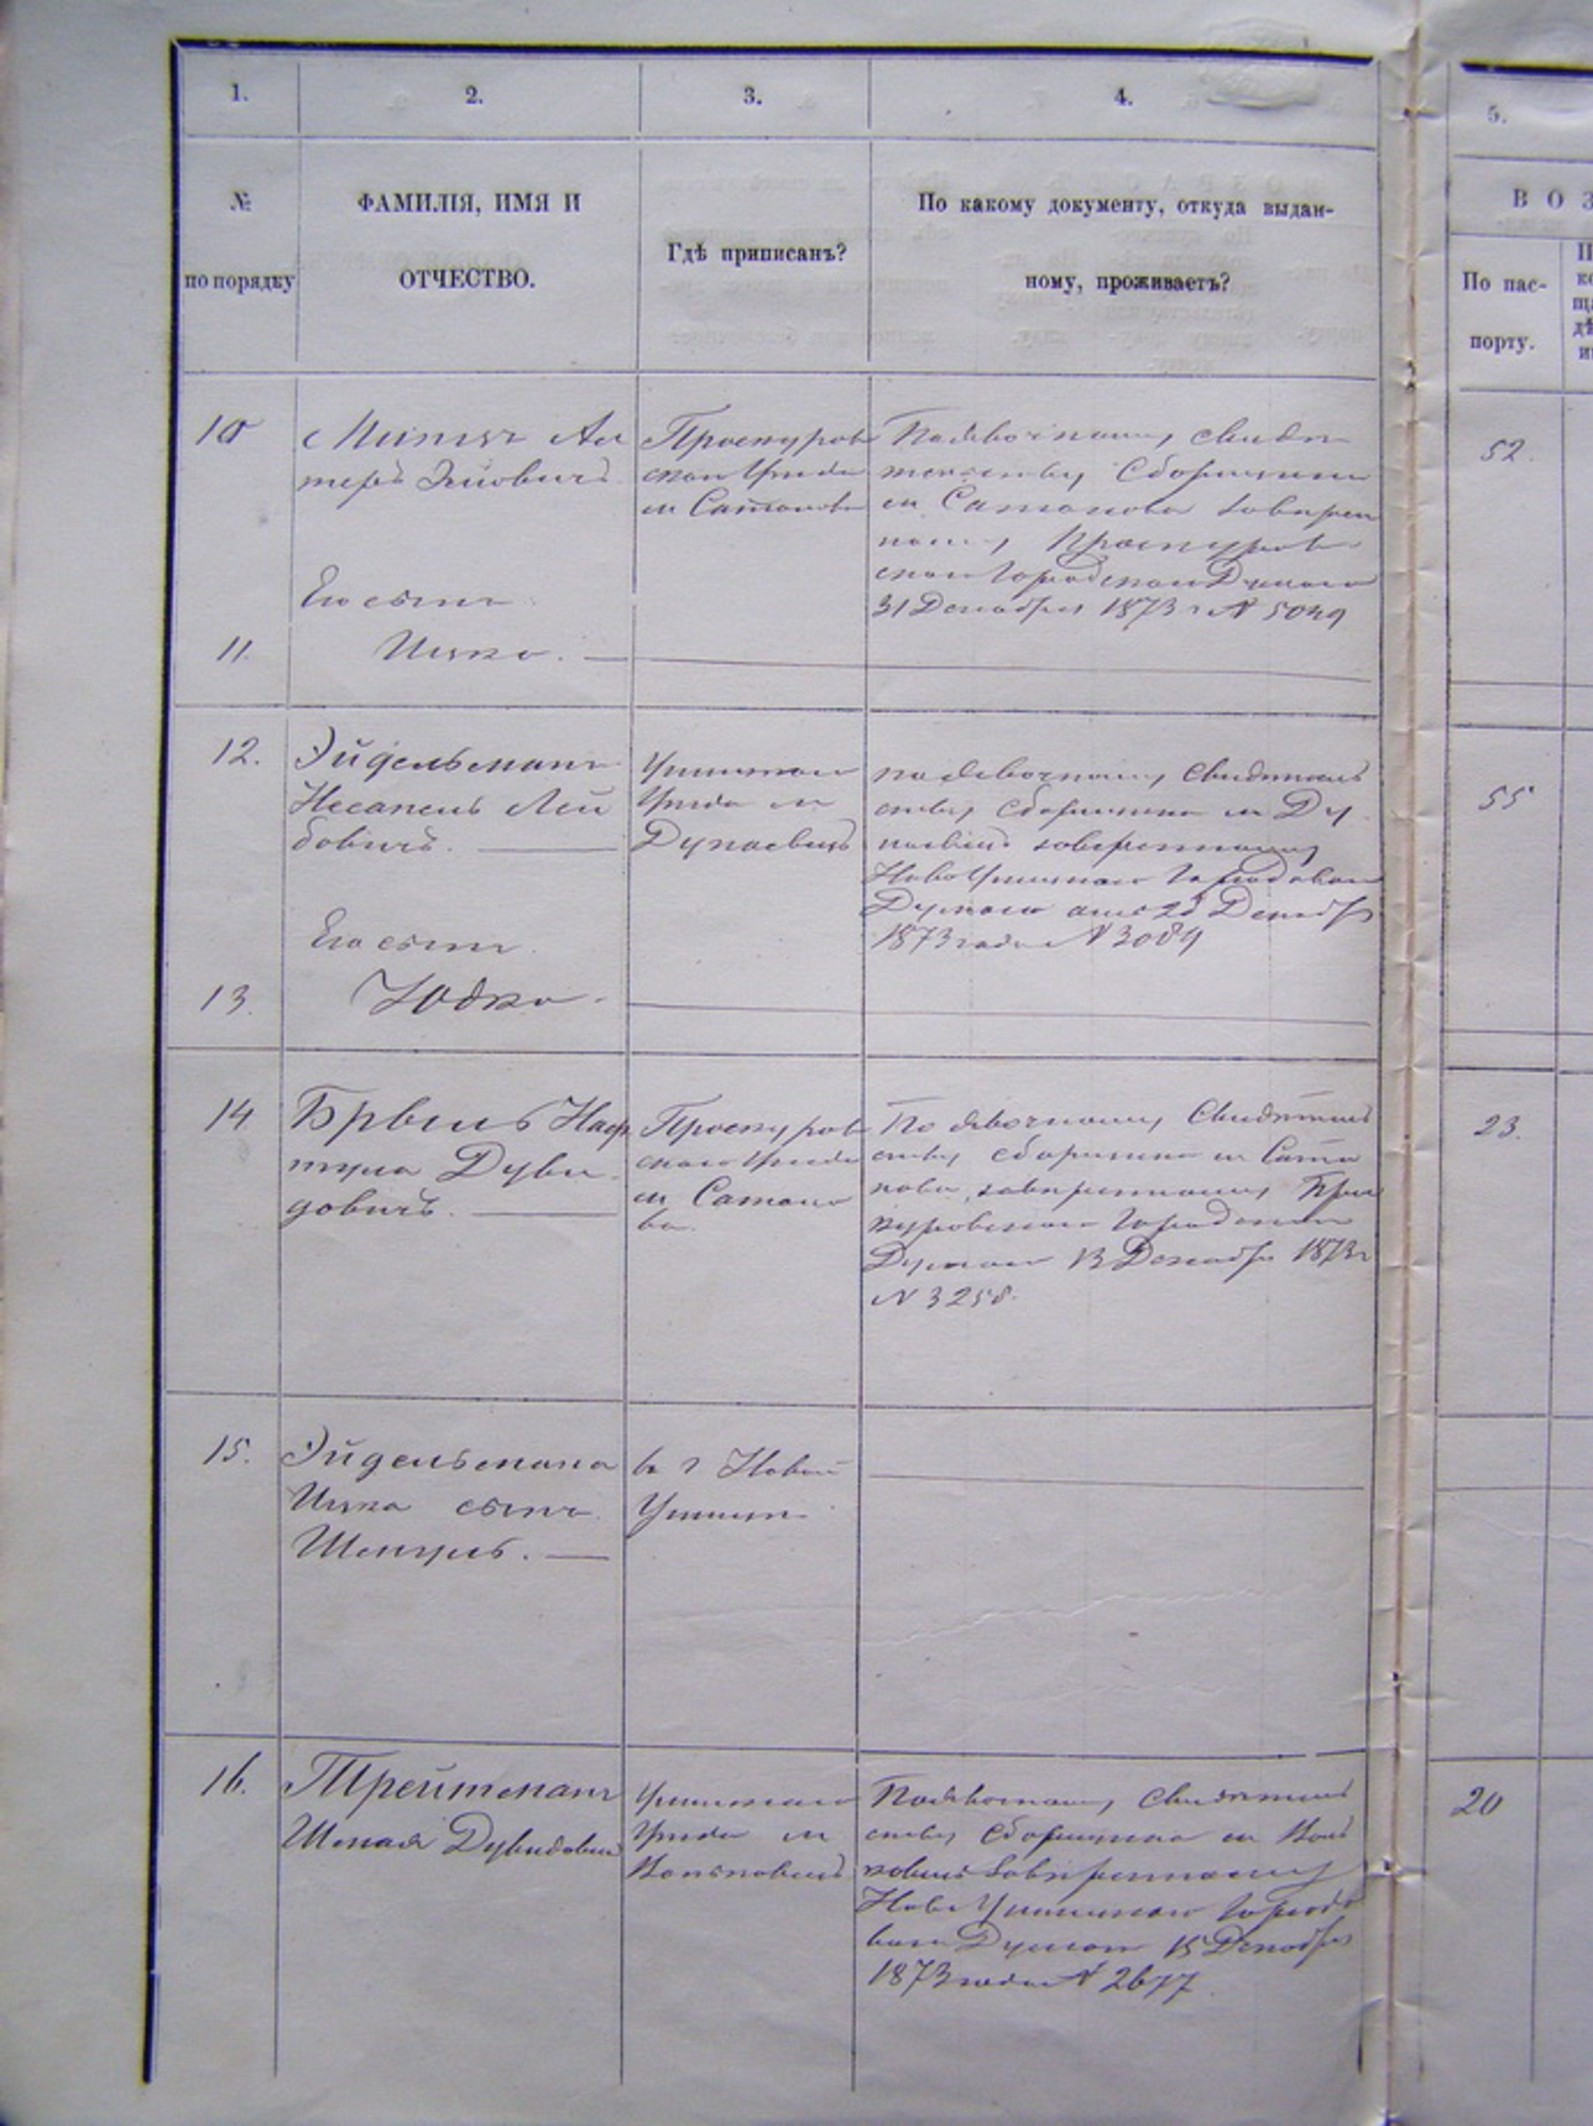 1.
2.
3.
4.
5.
№
по порядку
ФАМИЛІЯ, ИМЯ И
ОТЧЕСТВО.
Гдѣ приписанъ?
По какому документу, откуда выдан-
ному, проживаетъ?
ВОЗ
По пас-
порту.
10
Ал
теръ
Проскуров
скаго Уѣзда
м Сатанова
Подевочному Свидѣ
тельству Сборщика
м Сатанова завѣрен
ному Проскуров
скою Городскою Думою
31 Декабря 1873 г №
52
Его сынъ
11.
Ицко.
12.
Эйдельманъ
Лей
бовичъ.
Ушицкаго
Уѣзда м
Дунаевцъ
подевочному Свидѣтель
ству Сборщика м Ду
наевцъ завѣренному
Ново Ушицкою Городовою
Думою Декабр
1873 года № 3089
55
Его сынъ
13.
Юдко.
14
Наф
тула Дуви
довичъ.
Проскуров
скаго Уѣзда
м Сатано
ва.
По девочному Свидѣтель
ству сборщика м Сата
нова, завѣренному Прос
куровскою Городскою
Думою 13 Декабр 1873 г
№ 3258.
23.
15.
Эйдельмана
Ицка сынъ
Шмуль.
в г Новой
Ушицѣ
16.
Трейтманъ
Шмая Дувидовичъ
Ушицкаго
Уѣзда м
Подевочному Свидѣтель
ству Сборщика м
завѣренному
Ново Ушицкою Городо
вою Думою 15 Декабря
1873 года № 2677
20